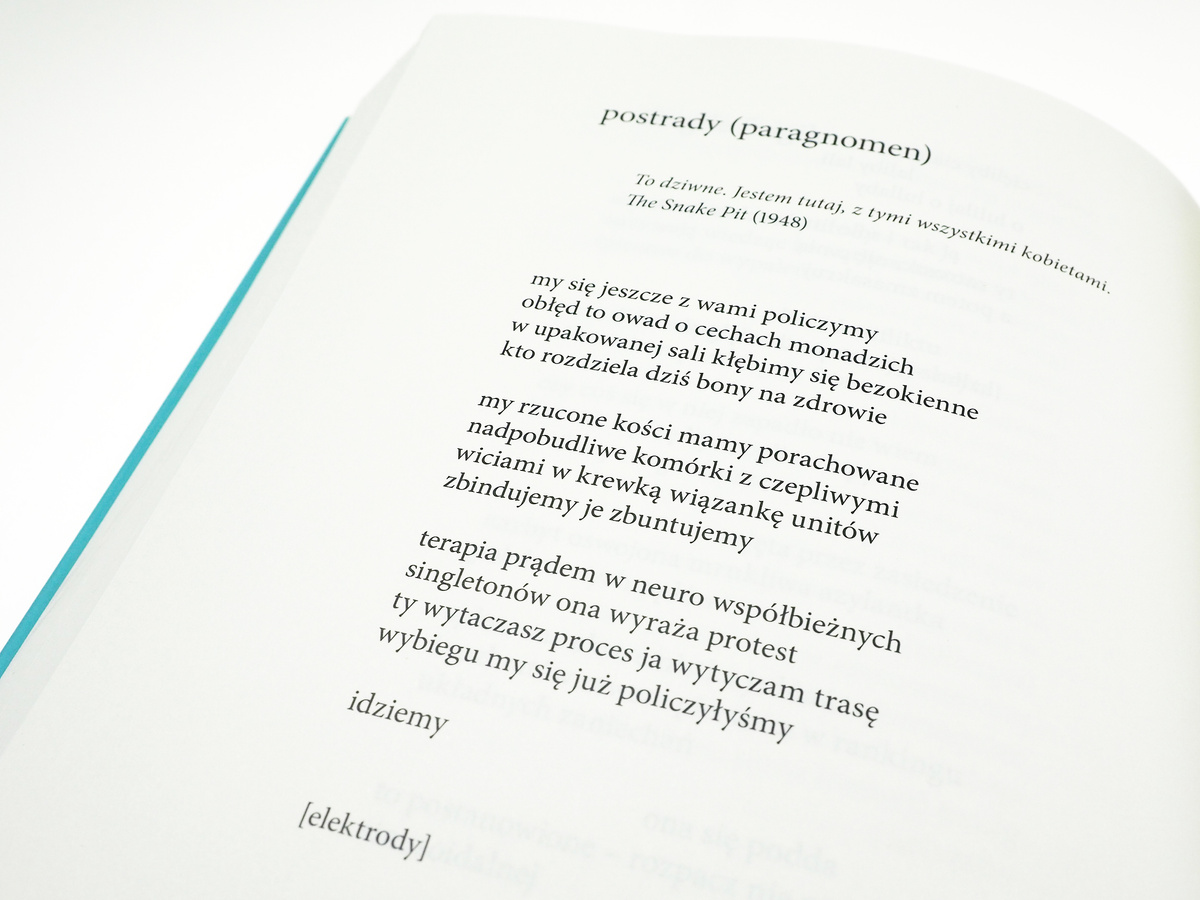 postrady (paragnomen)
To dziwne. Jestem tutaj, z tymi wszystkimi kobietami.
The Snake Pit (1948)
my się jeszcze z wami policzymy
obłęd to owad o cechach monadzich
w upakowanej sali kłębimy się bezokienne
kto rozdziela dziś bony na zdrowie
my rzucone kości mamy porachowane
nadpobudliwe komórki z czepliwymi
wiciami w krewką wiązankę unitów
zbindujemy je zbuntujemy
terapia prądem w neuro współbieżnych
singletonów ona wyraża protest
ty wytaczasz proces ja wytyczam trasę
wybiegu my się już policzyłyśmy
idziemy
[elektrody]